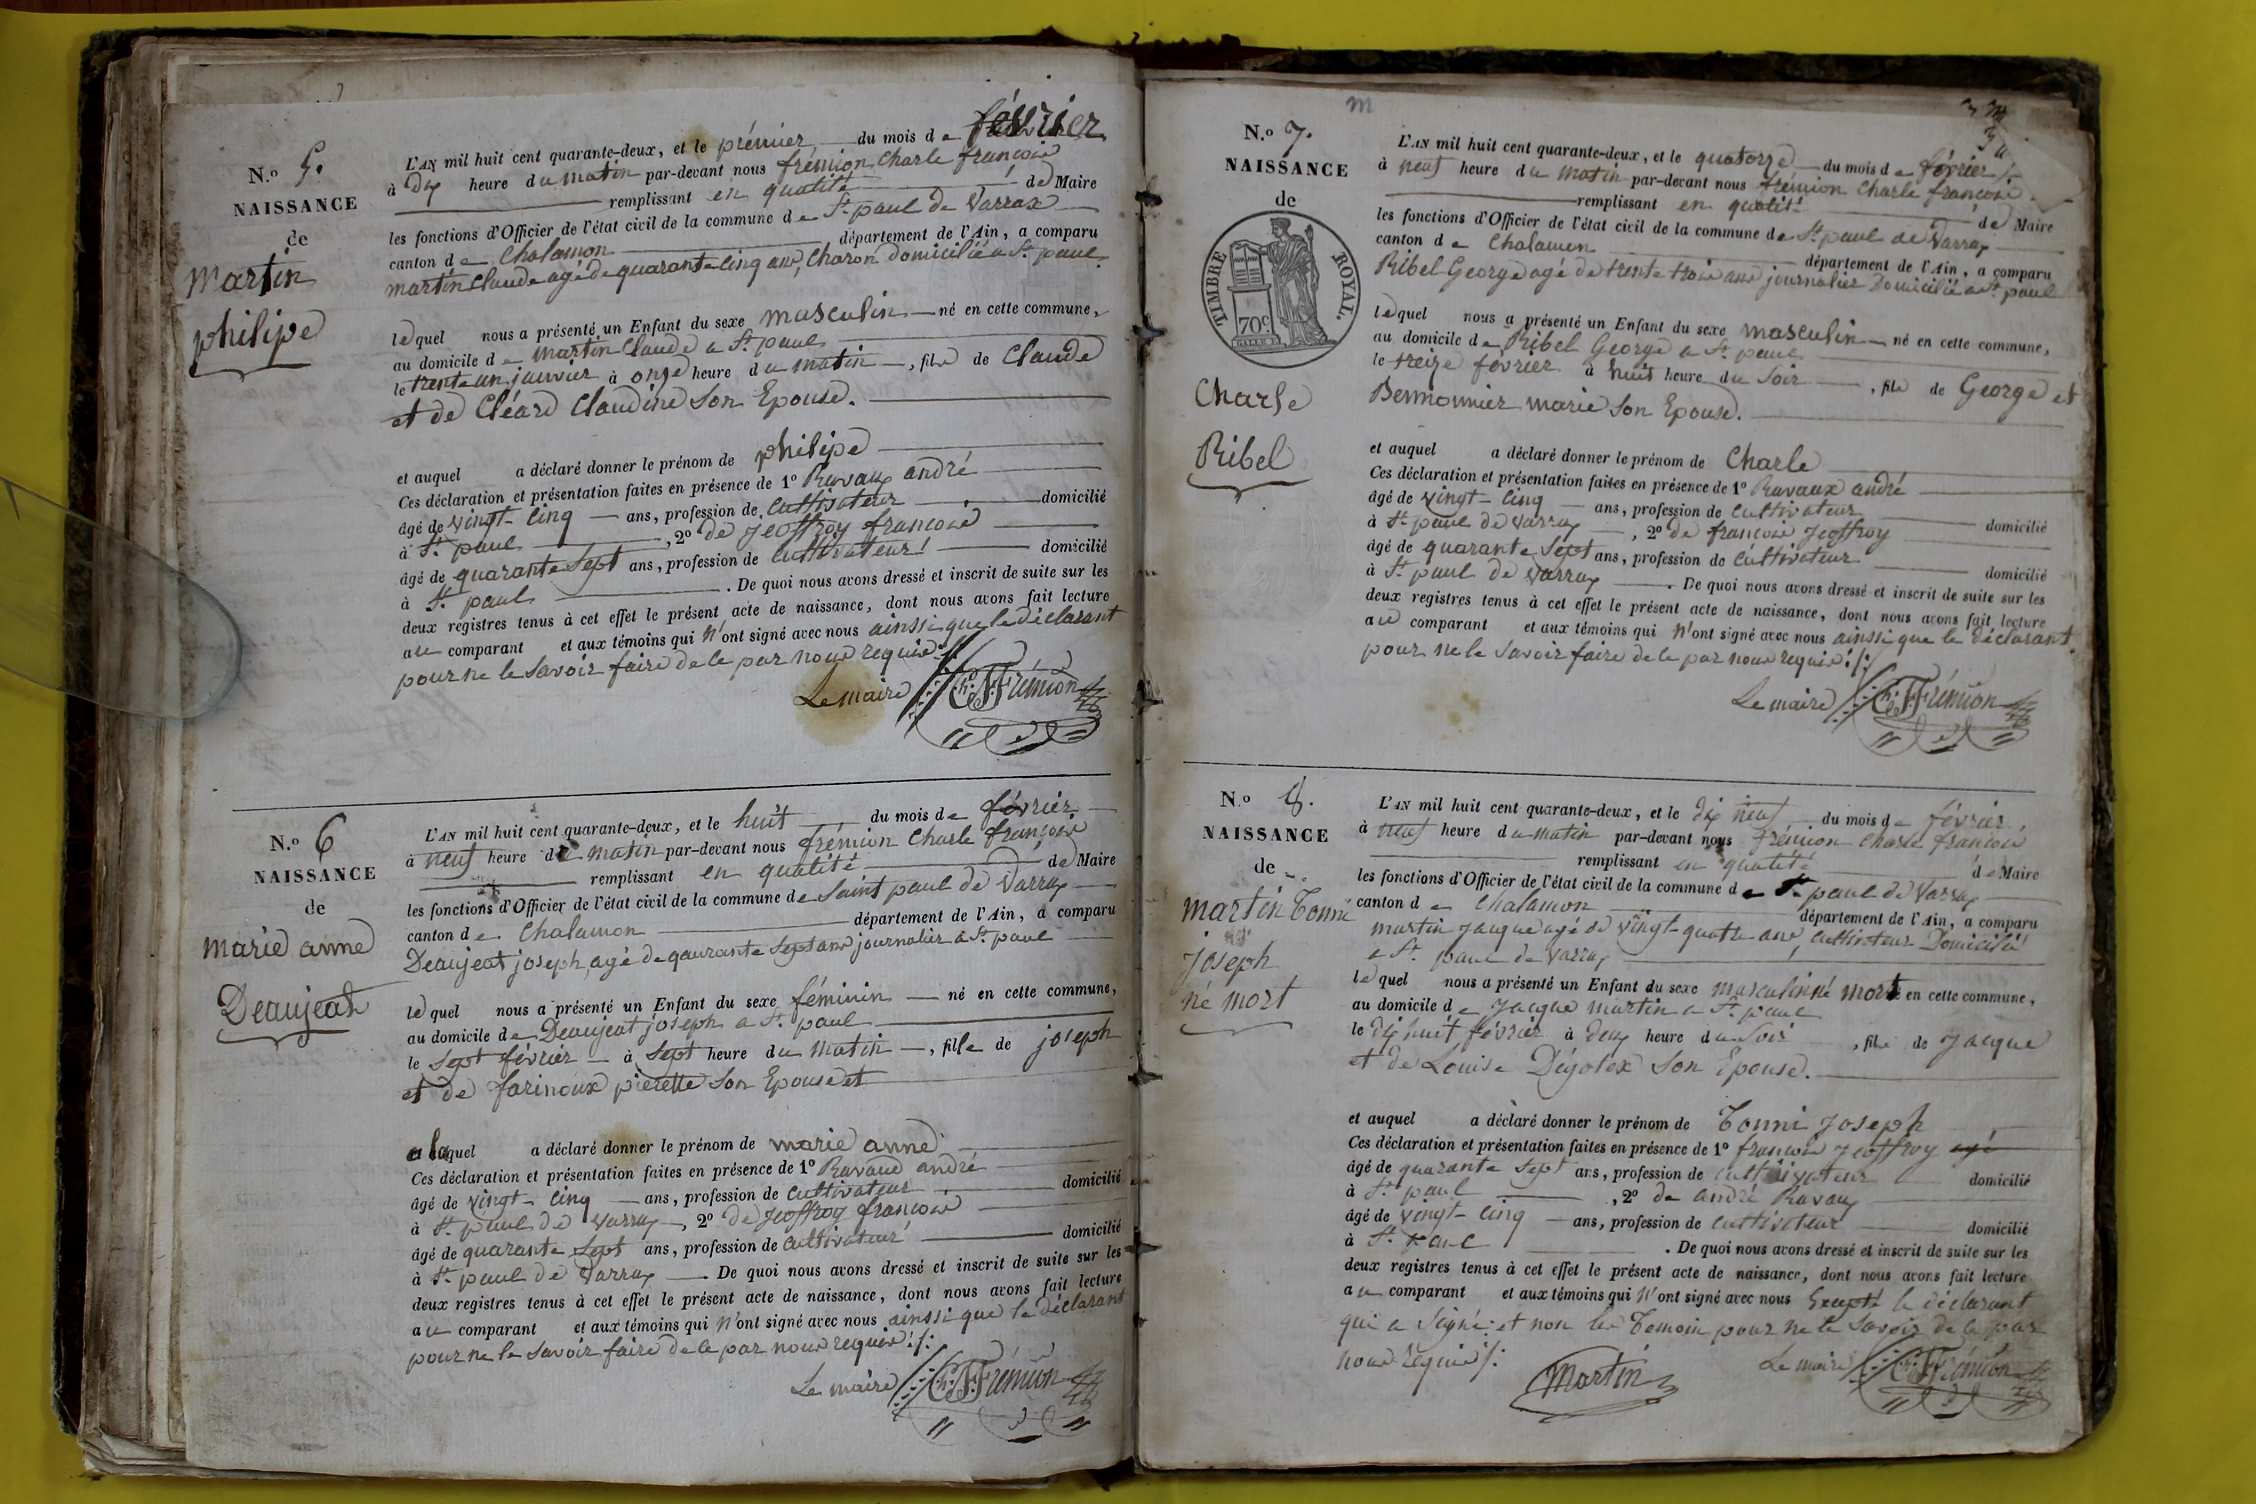 N.o 5.
NAISSANCE
de
Martin
philipe
L'AN mil huit cent quarante-deux, et le prémier du mois de février
à dix heure du matin par-devant nous frémion Charle françois
remplissant en qualité de Maire
les fonctions d'Officier de l'état civil de la commune de St. paul de Varrax
canton de Chalamon département de l'Ain, a comparu
martin Claude agé de quarante cinq ans, Charon domicilié a St. paul.
lequel nous a présenté un Enfant du sexe masculin né en cette commune,
au domicile de martin Claude a St. paul
le trente un janvier à onze heure du matin, fils de Claude
et de Cléard Claudine Son Epouse.
et auquel a déclaré donner le prénom de philipe
Ces déclaration et présentation faites en présence de 1o Ravaux andré
âgé de vingt-cinq ans, profession de Cultivateur domicilié
à St. paul, 2o de jeoffroy francois
âgé de quarante Sept ans, profession de Cultivateur domicilié
à St. paul. De quoi nous avons dressé et inscrit de suite sur les
deux registres tenus à cet effet le présent acte de naissance, dont nous avons fait lecture
au comparant et aux témoins qui n'ont signé avec nous ainssi que le déclarant
pour ne le Savoir faire de ce par nous requis ./.
Le maire Ch. F. Frémion
N.o 6
NAISSANCE
de
marie anne
Deaujeat
L'AN mil huit cent quarante-deux, et le huit du mois de février
à neuf heure de matin par-devant nous frémion Charle françois
remplissant en qualité de Maire
les fonctions d'Officier de l'état civil de la commune de Saint paul de Varrax
canton de Chalamon département de l'Ain, a comparu
Deaujeat joseph, agé de qaurante Sept ans journalier a St. paul
lequel nous a présenté un Enfant du sexe féminin né en cette commune,
au domicile de Deaujeat joseph a St. paul
le Sept février à Sept heure du matin, fille de joseph
et de farinoux pierette Son Epouse et
a laquel a déclaré donner le prénom de marie anne
Ces déclaration et présentation faites en présence de 1o Ravaud andré
âgé de vingt-cinq ans, profession de Cultivateur domicilié
à St. paul de Varrax, 2o de jeoffroy francois
âgé de quarante Sept ans, profession de Cultivateur domicilié
à St. paul de Varrax. De quoi nous avons dressé et inscrit de suite sur les
deux registres tenus à cet effet le présent acte de naissance, dont nous avons fait lecture
au comparant et aux témoins qui n'ont signé avec nous ainssi que le déclarant
pour ne le Savoir faire de ce par nous requis ./.
Le maire Ch. F. Frémion
m
N.o 7.
NAISSANCE
de
TIMBRE ROYAL.
70c
Charle
Ribel
L'AN mil huit cent quarante-deux, et le quatorze du mois de février
à neuf heure du matin par-devant nous frémion Charle françois
remplissant en qualité de Maire
les fonctions d'Officier de l'état civil de la commune de St. paul de Varrax
canton de Chalamon département de l'Ain, a comparu
Ribel George agé de trente trois ans journalier Domicilié a St. paul
lequel nous a présenté un Enfant du sexe masculin né en cette commune,
au domicile de Ribel George a St. paul
le treize février à huit heure du Soir, fils de George et
Bennonnier marie Son Epouse.
et auquel a déclaré donner le prénom de Charle
Ces déclaration et présentation faites en présence de 1o Ravaux andré
âgé de vingt-cinq ans, profession de Cultivateur domicilié
à St. paul de Varrax, 2o de francois jeoffroy
âgé de quarante Sept ans, profession de Cultivateur domicilié
à St. paul de Varrax. De quoi nous avons dressé et inscrit de suite sur les
deux registres tenus à cet effet le présent acte de naissance, dont nous avons fait lecture
au comparant et aux témoins qui n'ont signé avec nous ainssi que le déclarant.
pour ne le Savoir faire de ce par nous requis ./.
Le maire Ch. F. Frémion
N.o 8.
NAISSANCE
de
martin Tonni
joseph
né mort
L'AN mil huit cent quarante-deux, et le dix neuf du mois de février,
à neuf heure du matin par-devant nous frémion Charle francois
remplissant en qualité de Maire
les fonctions d'Officier de l'état civil de la commune de St. paul de Varrax
canton de Chalamon département de l'Ain, a comparu
martin jacque agé de vingt-quatre ans, Cultivateur Domicilié
a St. paul de Varrax
lequel nous a présenté un Enfant du sexe masculin né mort en cette commune,
au domicile de jacque martin a St. paul
le dix huit février à deux heure du Soir, fils de jacque
et de Louise Dégolex Son Epouse.
et auquel a déclaré donner le prénom de Tonni joseph
Ces déclaration et présentation faites en présence de 1o francois jeoffroy agé
âgé de quarante Sept ans, profession de Cultivateur domicilié
à St. paul, 2o de andré Ravaux
âgé de vingt-cinq ans, profession de Cultivateur domicilié
à St. paul. De quoi nous avons dressé et inscrit de suite sur les
deux registres tenus à cet effet le présent acte de naissance, dont nous avons fait lecture
au comparant et aux témoins qui n'ont signé avec nous Excepté le déclarant
qui a Signé: et non les Temoin pour ne le Savoir de ce par
nous requis ./. Martin Le maire Ch. F. Frémion